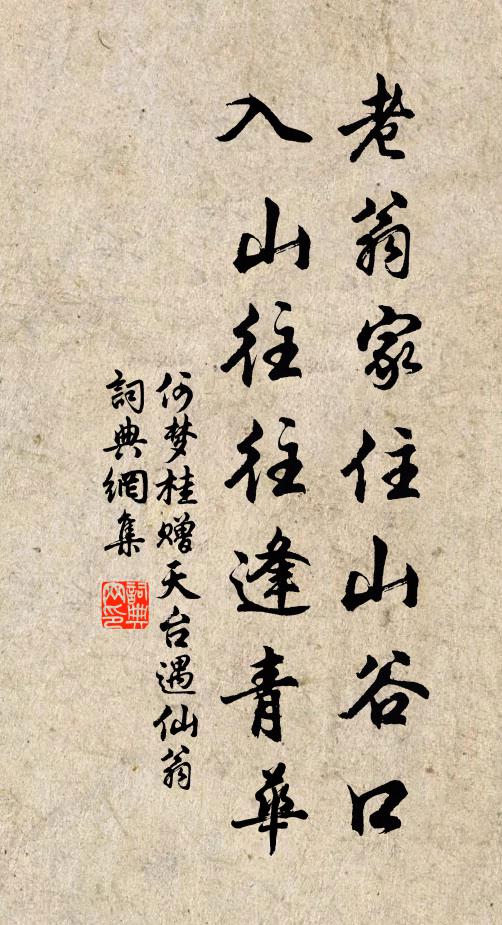 老翁家住山谷口
入山往往逢青華
何梦桂赠天台遇仙翁
詞典網集
詞典
网印